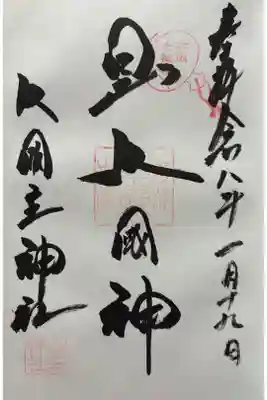 奉拝 令和八年 一月十九日
日出大國神
大国主神社